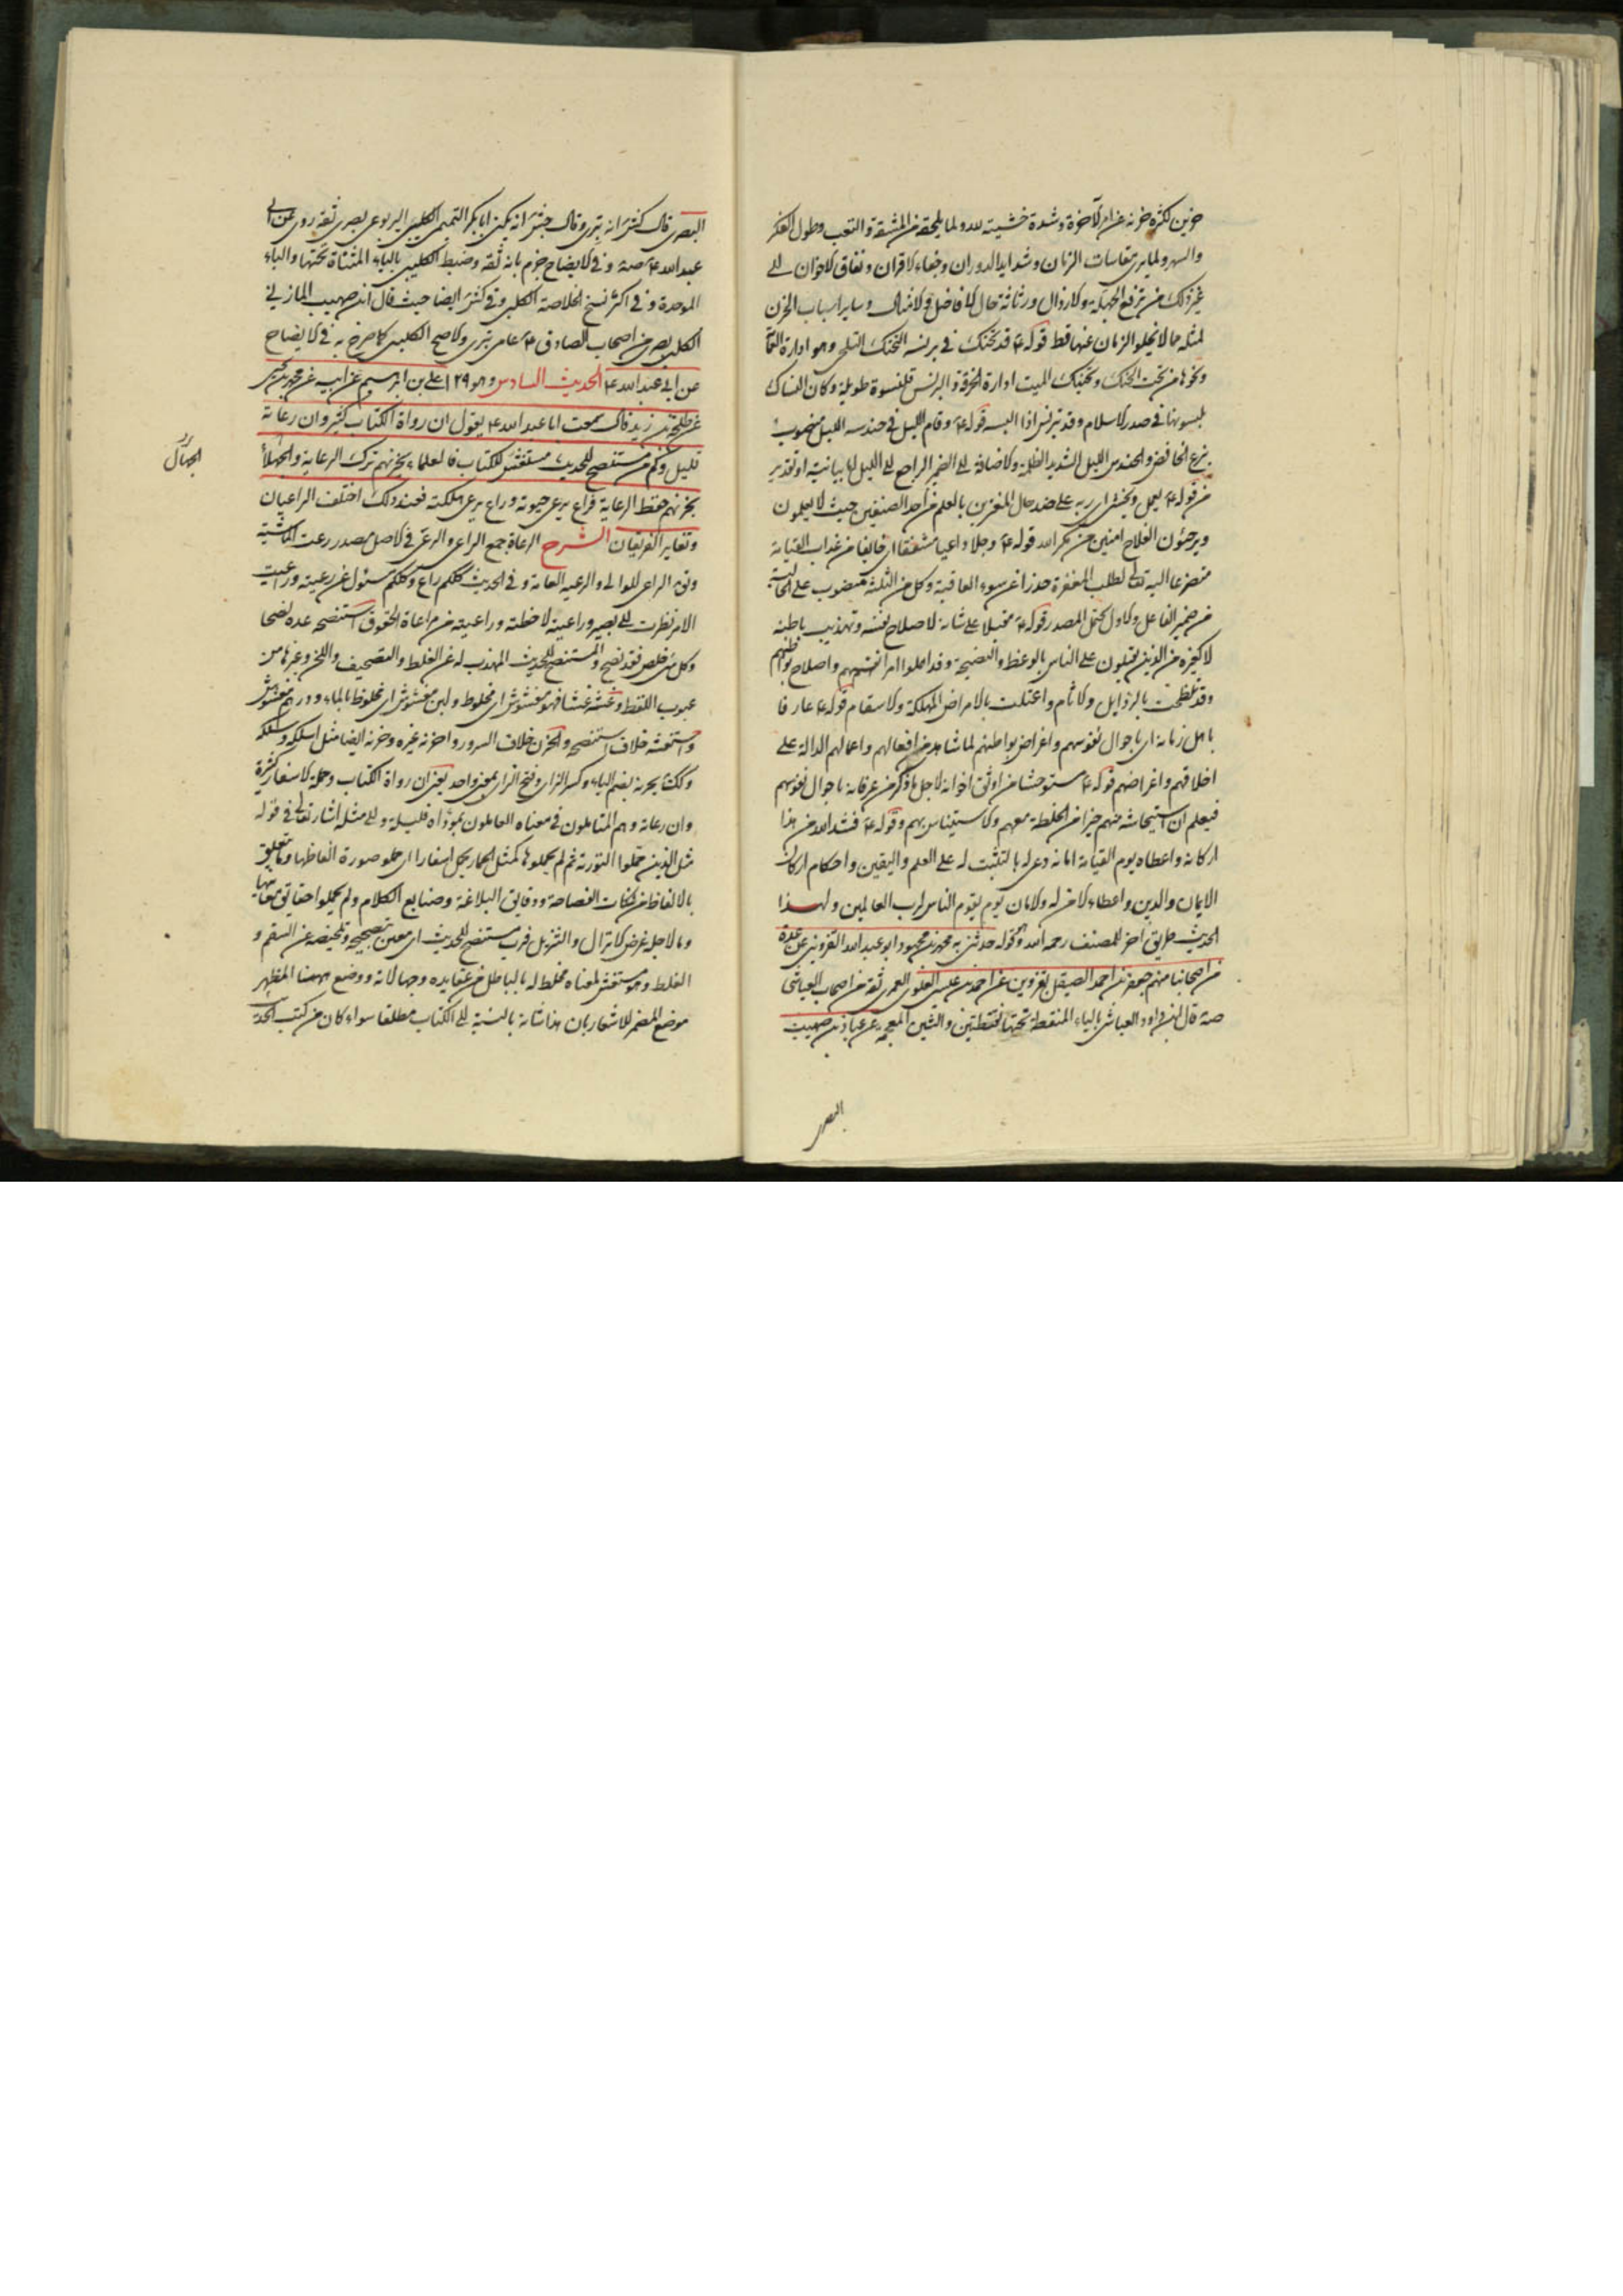 حزين لكثرة حزنه غرام الآخرة وشدة خشيته لله ولما يلحقه من المشقة والتعب وطول الفكر
والسهر ولما يرى مقاسات الزمان وشدايد الدوران وجفاء الاقران ونفاق الاخوان الى
غير ذلك من ترفع الجهلة والارذال ورثاثة حال الافاضل والامثال وساير اسباب الحزن
لمثله مما لا يخلو الزمان عنها قط قوله ع قد تحنك في برنسه التحنك التلحى وهو ادارة العمامة
ونحوها من تحت الحنك وتحنيك الميت ادارة الخرقة والبرنس قلنسوة طويلة وكان النساك
يلبسونها في صدر الاسلام وقد تبرنس اذا لبسه قوله ع وقام الليل في حندسه الليل منصوب
بنزع الخافض والحندس الليل الشديد الظلمة والاضافة الى الضمير الراجع الى الليل اما بيانية او بتقدير
من قوله ع يعمل ويخشى اى ربه على ضد حال المغترين بالعلم من احد الصنفين حيث لا يعملون
ويرجئون الفلاح امنين من مكر الله قوله ع وجلا داعيا مشفقا اى خايفا من عذاب القيامة
متضرعا اليه تعالى لطلب المغفرة حذرا عن سوء العاقبة وكل من الثلثة منصوب على الحالية
من ضمير الفاعل والاول يحتمل المصدر قوله ع مقبلا على شانه لاصلاح نفسه وتهذيب باطنه
لا كغيره من الذين يقبلون على الناس بالوعظ والنصيحة وقد اهملوا امر انفسهم واصلاح بواطنهم
وقد تلطخت بالرذايل والاثام واعتلت بالامراض المهلكة والاسقام قوله ع عارفا
باهل زمانه اى باحوال نفوسهم واغراض بواطنهم لما شاهد من افعالهم واعمالهم الدالة على
اخلاقهم واغراضهم قوله ع مستوحشا من اوثق اخوانه لاجل ما ذكر من عرفانه باحوال نفوسهم
فيعلم ان استيحاشه منهم خير من الخلطة معهم والاستيناس بهم وقوله ع فشد الله من هذا
اركانه واعطاه يوم القيامة امانه دعى له بالتثبت له على العلم واليقين واحكام اركان
الايمان والدين واعطاء الامن له والامان يوم يقوم الناس لرب العالمين ولهذا
الحديث طريق اخر للمصنف رحمه الله وهو قوله حدثنى به محمد بن محمود ابو عبد الله القزوينى عن عدة
من اصحابنا منهم جعفر بن احمد الصيقل بقزوين عن احمد بن عيسى العلوى العمرى ثقة من اصحاب العياشى
صه قال ابن داود العياشى بالياء المنقطة تحتها نقطتين والشين المعجمة عن عباد بن صهيب
البصرى
البصرى قال كش انه بترى وقال جش انه يكنى ابا بكر التميمى الكليبى اليربوعى بصرى ثقة روى عن ابى
عبد الله ع صه و في الايضاح جزم بانه ثقة وضبط الكليبى بالياء المثناة تحتها والباء
الموحدة و في اكثر نسخ الخلاصة الكلبى و في كش ايضا حيث قال ابن صهيب المازنى
الكلبى بصرى من اصحاب الصادق ع عامى بترى والاصح الكليبى كما صرح به في الايضاح
عن ابى عبد الله ع الحديث السادس وهو ١٢٩ على بن ابرهيم عن ابيه عن محمد بن يحيى
عن طلحة بن زيد قال سمعت ابا عبد الله ع يقول ان رواة الكتاب كثير وان رعاته
قليل وكم من مستنصح للحديث مستغش للكتاب فالعلماء يحزنهم ترك الرعاية والجهلاء
الجهال
يحزنهم حفظ الرعاية فراع يرعى حيوته وراع يرعى هلكته فعند ذلك اختلف الراعيان
وتغاير الفريقان الشرح الرعاة جمع الراعى والرعى في الاصل مصدر رعت الماشية
ويق الراعى للوالى والرعية العامة و في الحديث كلكم راع وكلكم مسئول عن رعيته وراعيت
الامر نظرت الى ما يصير وراعيته لاحظته وراعيته من مراعاة الحقوق استنصحه عده نصحا
وكل شئ خلص فقد نصح والمستنصح للحديث المهذب له عن الغلط والتصحيف واللحن وغيرها من
عيوب اللفظ وغشه غشا فهو مغشوش اى مخلوط ولبن مغشوش اى مخلوط بالماء ودرهم مغشوش
واستغشه خلاف استنصحه والحزن خلاف السرور واحزنه غيره وحزنه ايضا مثل اسلكه وسلكه
وكذا يحزنه بضم الياء وكسر الزاى وفتح الزاى بمعنى واحد يعنى ان رواة الكتاب وحملة الاسفار كثيرة
وان رعاته وهم المتاملون في معناه العاملون بمؤداه قليلة والى مثله اشار تعالى في قوله
مثل الذين حملوا التورية ثم لم يحملوها كمثل الحمار يحمل اسفارا اى حملوا صورة الفاظها وما يتعلق
بالالفاظ من نكات الفصاحة ودقايق البلاغة وصنايع الكلام ولم يحملوا حقايق معانيها
وما لاجله غرض الانزال والتنزيل فرب مستنصح للحديث اى معين بتصحيحه وتلخيصه عن السقم و
الغلط وهو مستغش لمعناه مخلط له بالباطل من عقايده وجهالاته ووضع ههنا المظهر
موضع المضمر للاشعار بان هذا شانه بالنسبة الى الكتاب مطلقا سواء كان من كتب الحديث